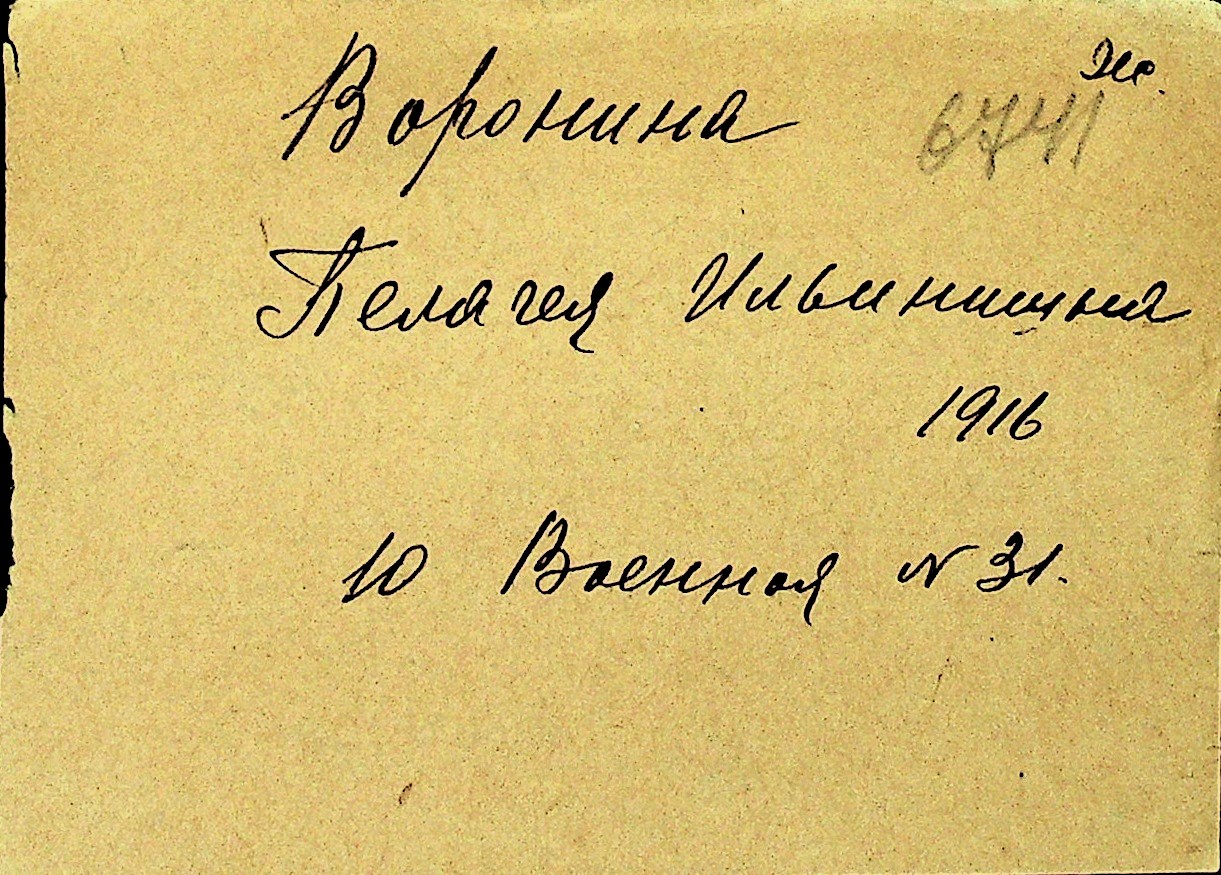 Ж.
Воронина 6741
Пелагея Ильинишна
1916
10 Военная N 31.